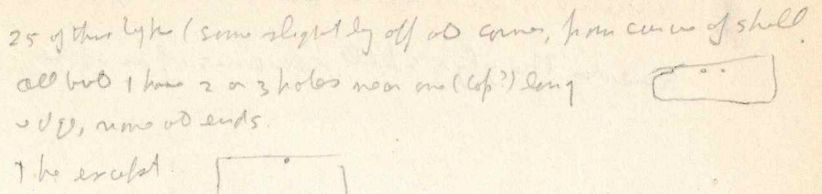 25 of this type (some slightly off at corner, from curve of shell
all but 1 have 2 or 3 holes near one (top?) long
edge, none at ends.
The except